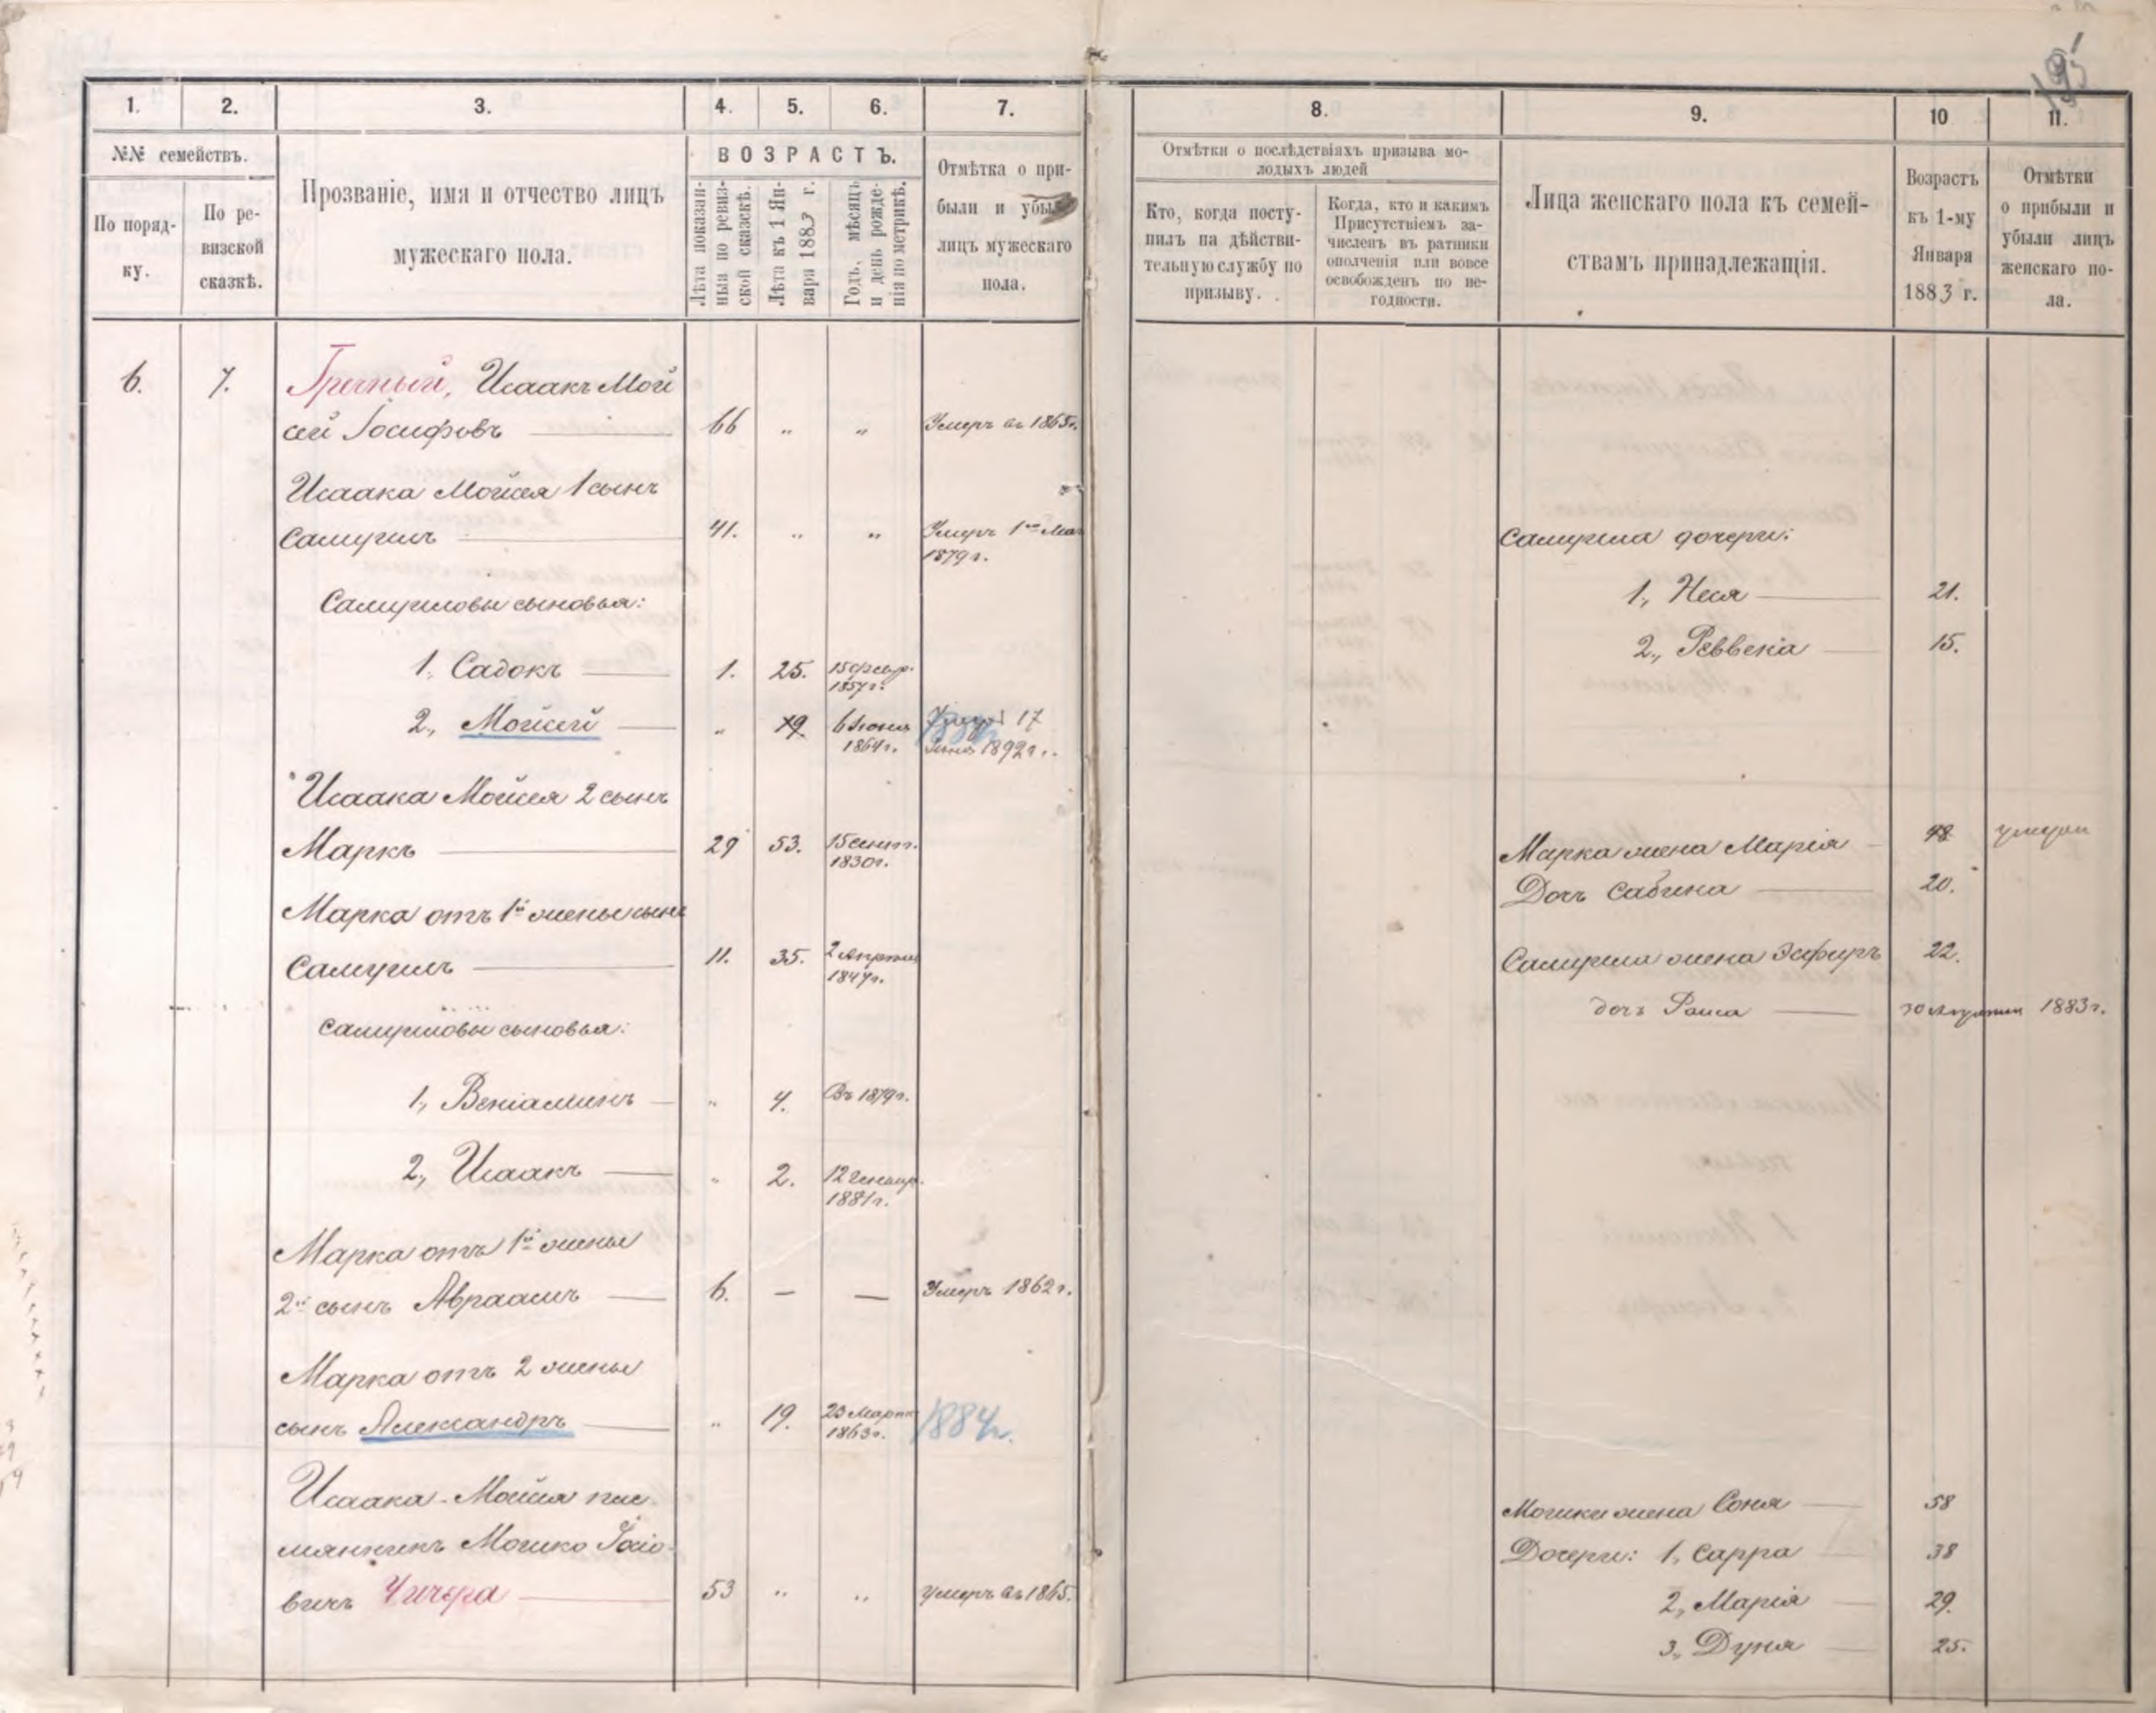 195
1.
2.
3.
4.
5.
6.
7.
8.
9.
10
11.
№№ семействъ.
По поряд-
ку.
По ре-
визской
сказкѣ.
Прозваніе, имя и отчество лицъ
мужескаго пола.
ВОЗРАСТЪ.
Лѣта показан-
ныя по ревиз-
ской сказкѣ.
Лѣта къ 1 Ян-
варя 1883 г.
Годъ, мѣсяцъ
и день рожде-
нія по метрикѣ.
Отмѣтка о при-
были и убыли
лицъ мужескаго
пола.
Отмѣтки о послѣдствіяхъ призыва мо-
лодыхъ людей
Кто, когда посту-
пилъ на дѣйстви-
тельную службу по
призыву.
Когда, кто и какимъ
Присутствіемъ за-
численъ въ ратники
ополченія или вовсе
освобожденъ по не-
годности.
Лица женскаго пола къ семей-
ствамъ принадлежащія.
Возрастъ
къ 1-му
Января
1883 г.
Отмѣтки
о прибыли и
убыли лицъ
женскаго по-
ла.
6. 7. Гречный, Исаакъ Мой
сей Іосифовъ 66 " " Умеръ въ 1865г.
Исаака Мойсея 1 сынъ
Самуилъ 41. " " Умеръ 1го Мая
1879г.
Самуила дочери:
Самуиловы сыновья:
1, Неся 21.
2, Реввекіа 15.
1. Садокъ 1. 25. 15 февр.
1857г.
2, Мойсей " 19. 6 Іюня
1864г.
Умеръ 17
1892г.
Исаака Мойсея 2 сынъ
Маркъ 29 53. 15 сент.
1830г.
Марка жена Марія 48 умерли
Дочь Сабина 20.
Марка отъ 1й жены сынъ
Самуилъ 11. 35. 2 Апреля
1847г.
Самуила жена Эсфиръ 22.
дочь Раиса 30 Апреля 1883г.
Самуиловы сыновья:
1, Веніаминъ " 4. Въ 1879г.
2, Исаакъ " 2. 12 Генвар.
1881г.
Марка отъ 1й жены
2й сынъ Авраамъ 6. — — Умеръ 1862г.
Марка отъ 2 жены
сынъ Александръ " 19. 23 Марта
1863г.
1884г.
Исаака-Мойсея пле
мянникъ Мошко Іосіо-
вичъ Чичера 53 " " умеръ въ 1865.
Мошки жена Соня 58
Дочери: 1, Сарра 38
2, Марія 29.
3, Дуня 25.